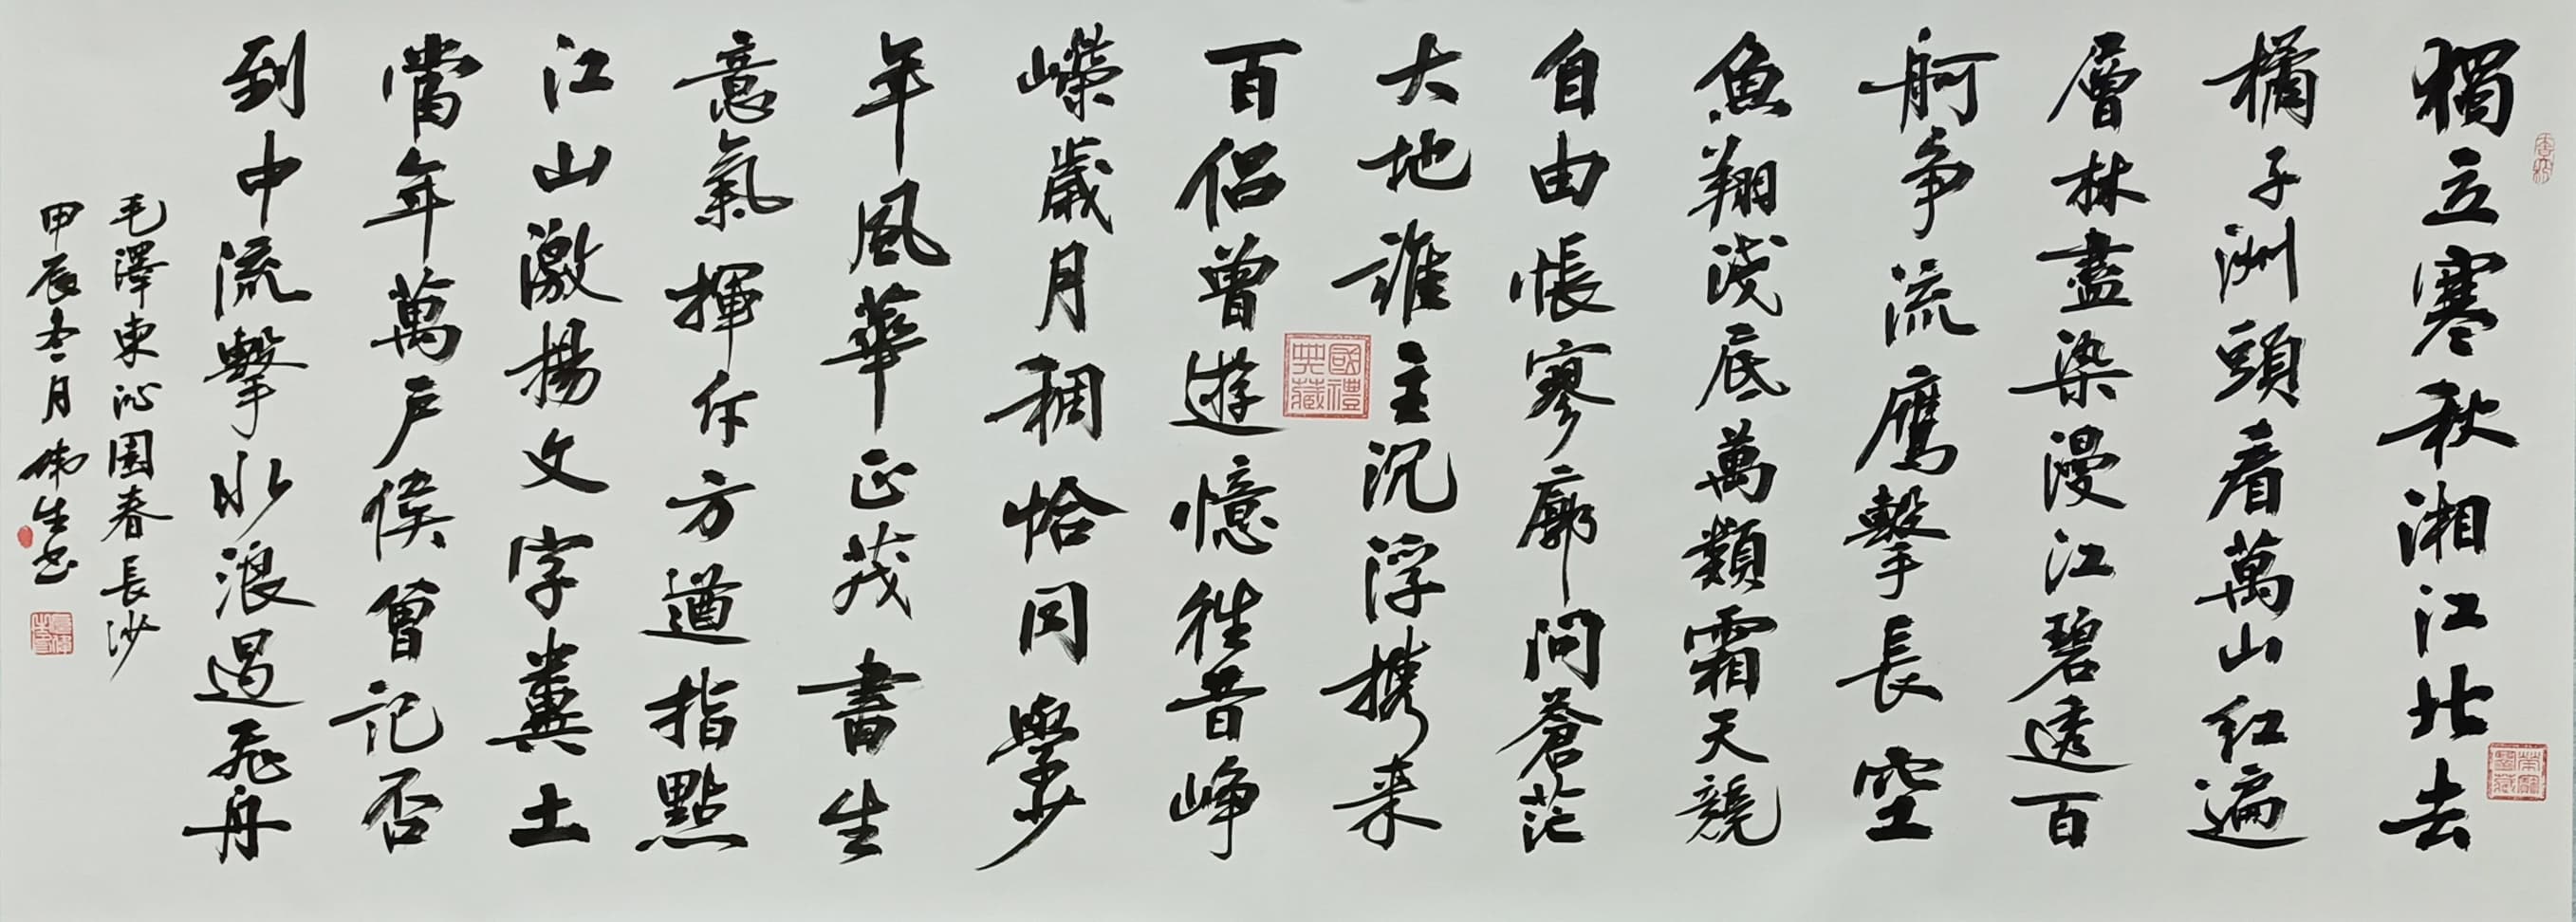 獨立寒秋湘江北去
橘子洲頭看萬山紅遍
層林盡染漫江碧透百
舸争流鹰擊長空
魚翔淺底萬類霜天競
自由悵寥廓問蒼茫
大地誰主沉浮携来
百侣曾遊憶往昔崢
嶸歲月稠恰同學少
年風華正茂書生
意氣揮斥方遒指點
江山激揚文字糞土
當年萬户侯曾記否
到中流擊水浪遏飛舟
毛澤東沁園春長沙
甲辰冬月偉生书
國禮
典藏